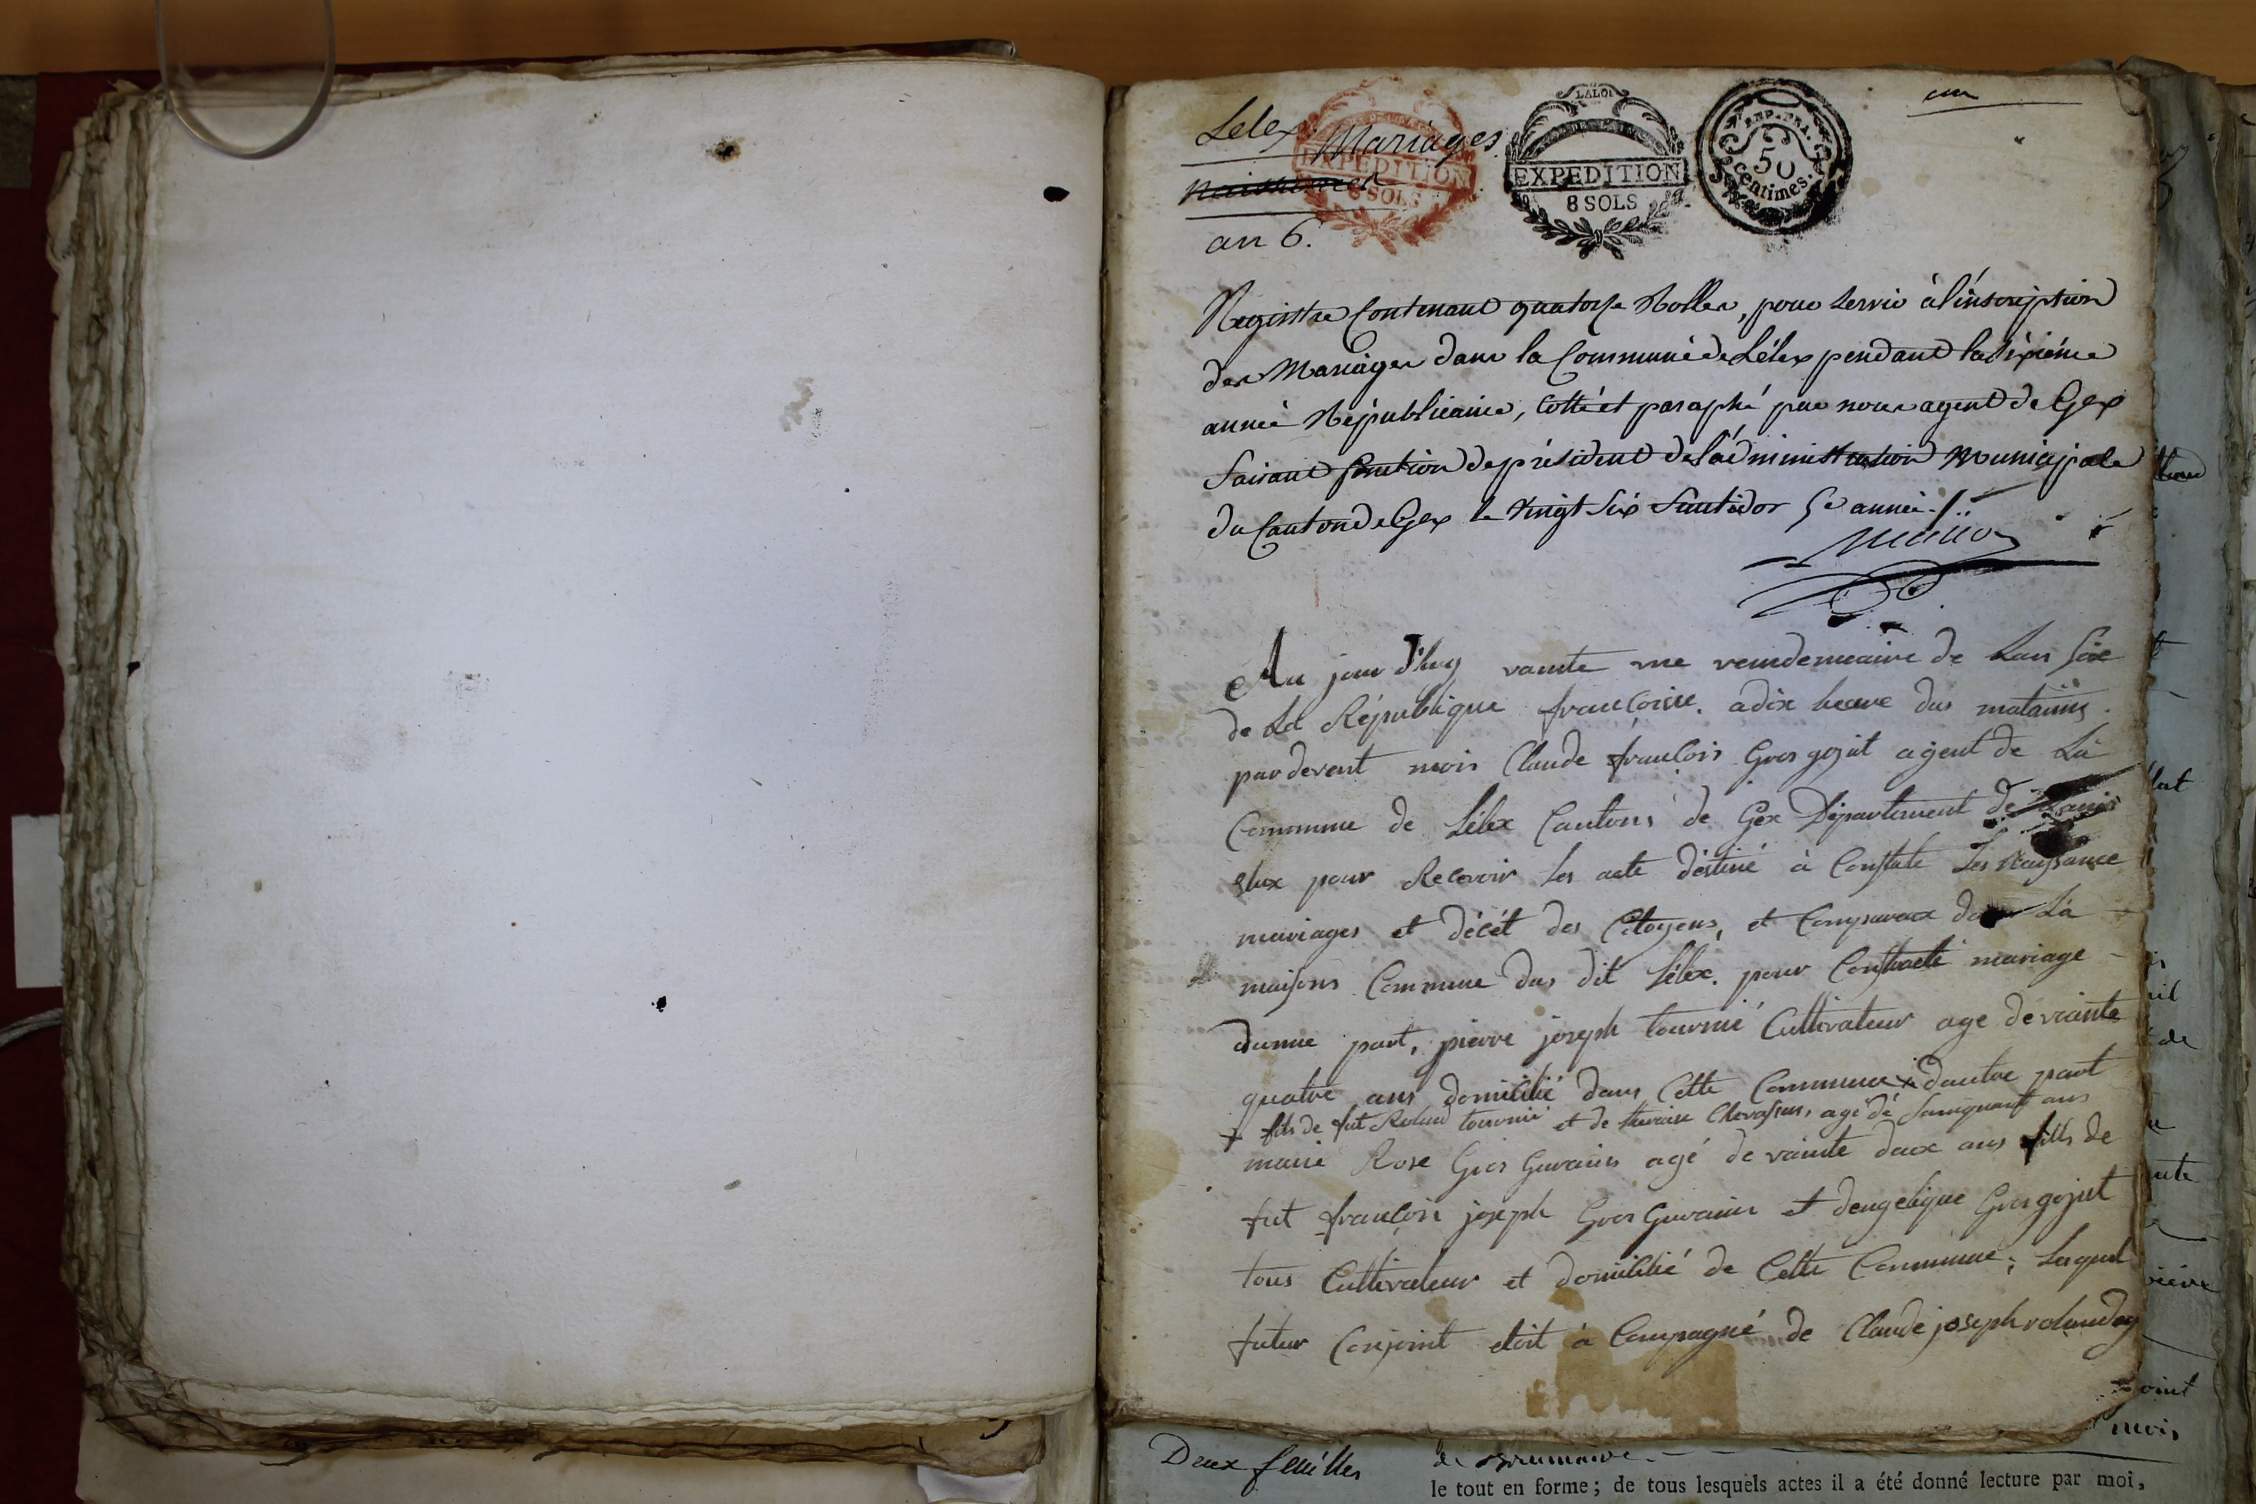 un
Lelex Mariages
naissances
an 6.
EXPEDITION
8 SOLS
LA LOI
EXPEDITION
8 SOLS
REP. FRA.
50
centimes.
Registre Contenant quatorze Rolles, pour servir à l'inscription
des Mariages dans la Commune de Lélex pendant la sixiéme
année Républicaine, Cotté et paraphé par nous agent de Gex
faisant fonction de président de l'administration municipale
du Canton de Gex le vingt six fructidor 5e année.
Au jour d'huy vainte une veindemeaire de Lan Six
de La République françoise. a dix heure dus matains.
par devent mois Claude françois Gros gojat agent de La
Commune de Lélex Cantons de Gex Département de
elux pour Recevoir les acte déstiné à Constate Les Naissance
mariages et décét des Citoyens, et Comparaux dans La
maisons Commune dus dit Lélex. pour Contracté mariage
dunne part, pierre joseph tournié Cultivateur age de viante
quatre ans domicilié dans Cette Commune x dautre part
x fils de fut Roland tournié et de Chevassus, agé de ans
marie Rose Gros Gurains agé de vainte deux ans fills de
fut françois joseph Gros Gurains et dengelique Gros gojat
tous Cultivateur et domicilié de Cette Commune; Lequel
futur Conjoint etoit à Compagné de Claude joseph
joint
mois
Deux feuilles
de Brumaire.
le tout en forme; de tous lesquels actes il a été donné lecture par moi,